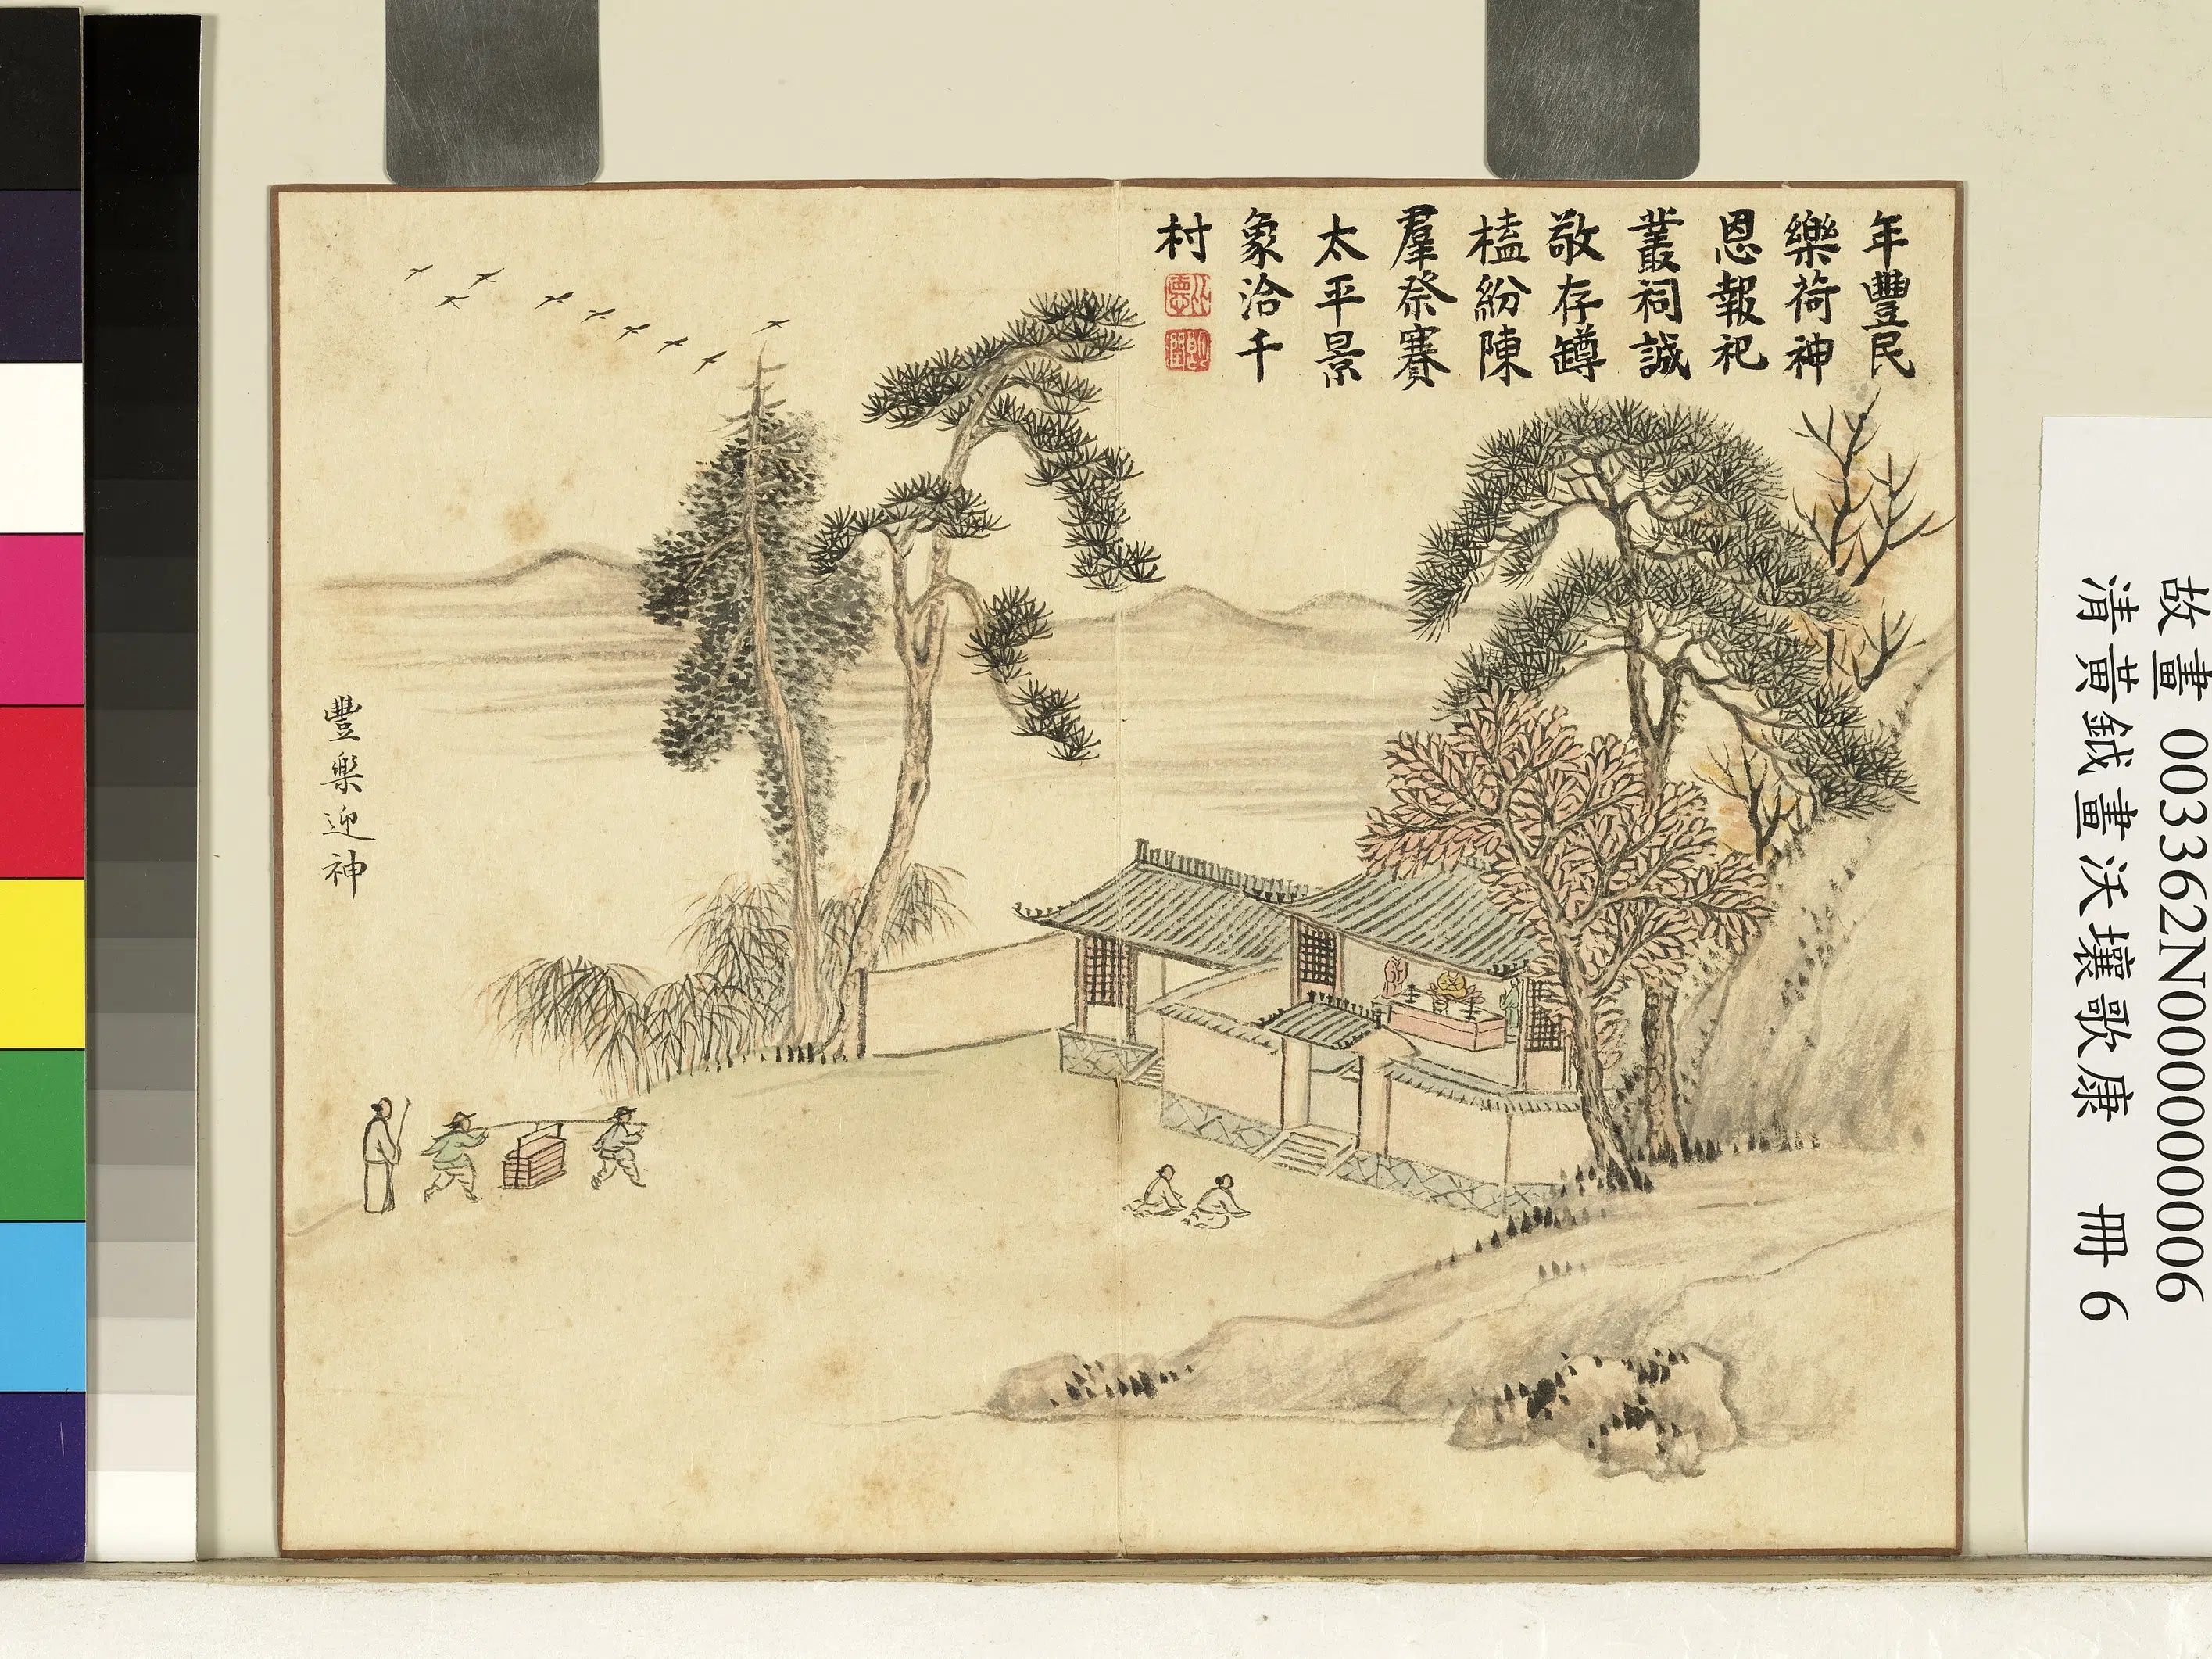 年豐民
樂荷神
恩報祀
叢祠誠
敬存罇
榼紛陳
羣祭賽
太平景
象洽千
村
豐樂迎神
故畫003362N000000006
清黃鉞畫沃壤歌康 冊6